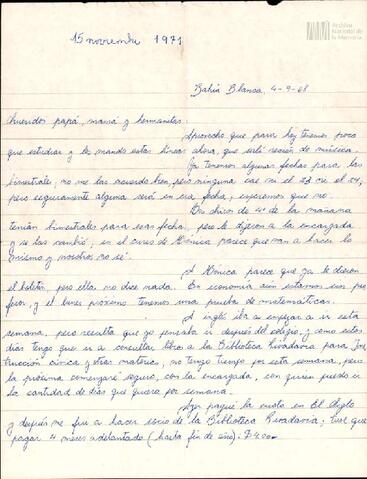 Archivo
Nacional de
la Memoria
15 noviembre 1971
Bahía Blanca, 4-9-68
Queridos papá, mamá y hermanitas:
Aprovecho que para hoy tenemos poco
que estudiar y les mando estas líneas ahora, que salí recién de música.
Ya tenemos algunas fechas para las
bimestrales, no me las acuerdo bien, pero ninguna cae ni el 23 ni el 24,
pero seguramente alguna será en esa fecha, esperemos que no.
Dos chicos de 4º de la mañana
tenían bimestrales para esas fechas, pero le dijeron a la encargada
y se las cambió, en el curso de Mónica parece que van a hacer lo
mismo y nosotros no sé.
A Mónica parece que ya le dieron
el boletín, pero ella no dice nada. En economía aún estamos sin pro
fesor, y el lunes próximo tenemos una prueba de matemáticas.
A inglés iba a empezar a ir esta
semana, pero resulta que yo pensaba ir después del colegio, y como estos
días tengo que ir a consultar libros a la Biblioteca Rivadavia para Ins
trucción cívica y otras materias, no tengo tiempo por esta semana, pero
la próxima comenzaré seguro, con la encargada, con quien puedo ir
la cantidad de días que quiera por semana.
Ayer pagué la cuota en El
y después me fui a hacer socio de la Biblioteca Rivadavia; tuve que
pagar 4 meses adelantado (hasta fin de año):